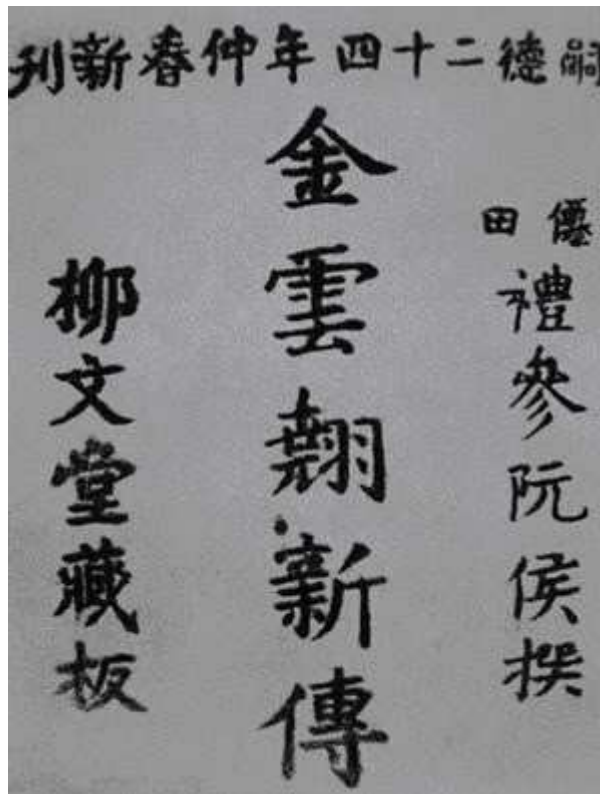 嗣德二十四年仲春新刊
僊田
禮參阮侯撰
金雲翹新傳
柳文堂藏板